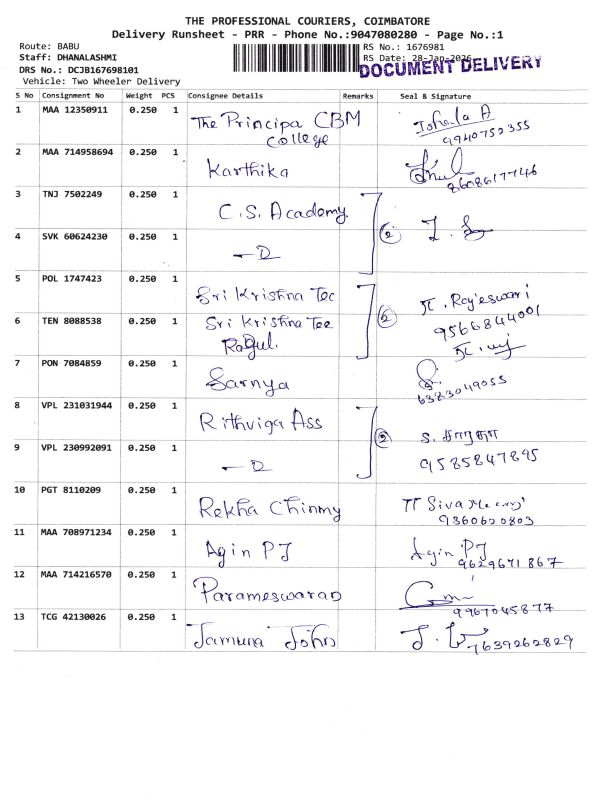 THE PROFESSIONAL COURIERS, COIMBATORE
Delivery Runsheet - PRR - Phone No.:9047080280 - Page No.:1
Route: BABU
Staff: DHANALASHMI
DRS No.: DCJB167698101
Vehicle: Two Wheeler Delivery
RS No.: 1676981
RS Date: 28-Jan-2026
DOCUMENT DELIVERY
S No Consignment No Weight PCS Consignee Details Remarks Seal & Signature
1 MAA 12350911 0.250 1 The Principa CBM
College
9940752355
2 MAA 714958694 0.250 1 Karthika
8608617746
3 TNJ 7502249 0.250 1 C.S. Academy
4 SVK 60624230 0.250 1 —D— (2)
5 POL 1747423 0.250 1 Sri Krishna Tec
K. Rajeswari
9566844001
6 TEN 8088538 0.250 1 Sri Krishna Tec (2)
Ragul.
7 PON 7084859 0.250 1 Sarnya
6383049055
8 VPL 231031944 0.250 1 Rithviga Ass
9 VPL 230992091 0.250 1 —D— (2)
9585847895
10 PGT 8110209 0.250 1 Rekha Chinmy
9360620803
11 MAA 708971234 0.250 1 Agin PJ Agin PJ
9629671867
12 MAA 714216570 0.250 1 Parameswaran
9967045877
13 TCG 42130026 0.250 1 Jamuna John
7639262829